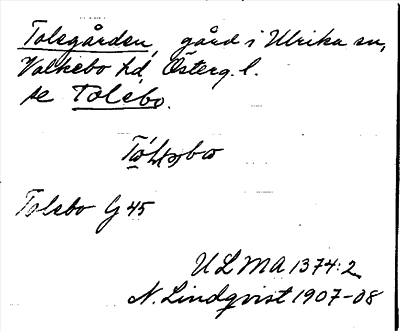 Tolsgården, gård i Ulrika sn,
Valkebo hd, Österg. l.
se Tolsbo.
Tolsbo G 45
ULMA 1374:2
N. Lindqvist 1907-08